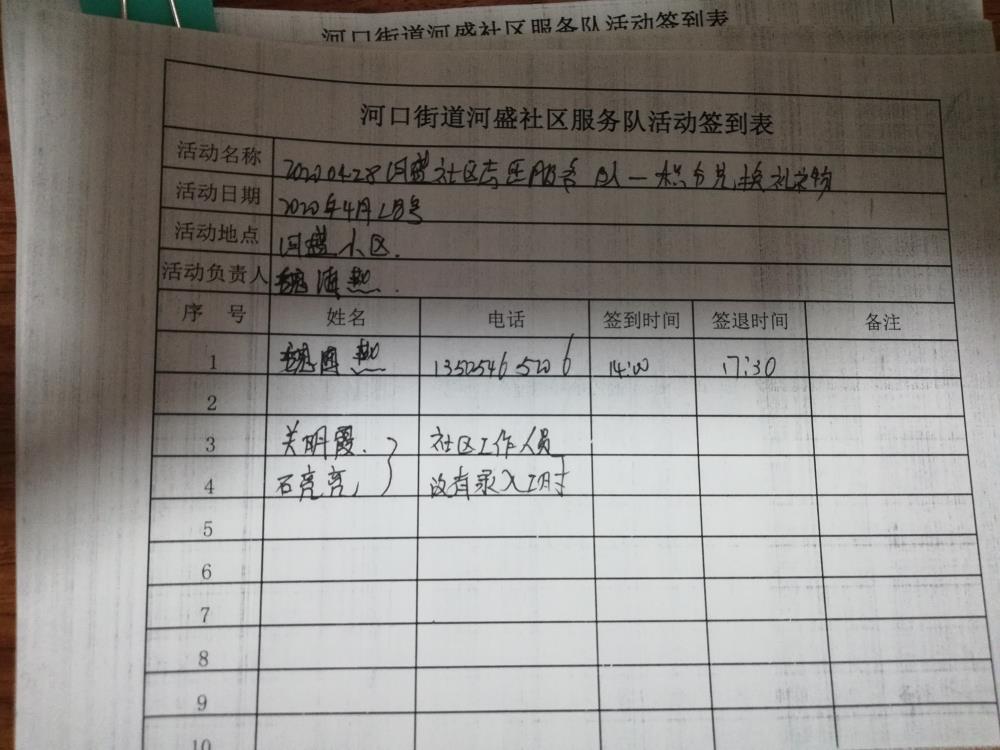 河口街道河盛社区服务队活动签到表
河口街道河盛社区服务队活动签到表
活动名称 20220428河盛社区志愿服务队一积分兑换礼物
活动日期 2022年4月28号
活动地点 河盛小区.
活动负责人
序 号 姓名 电话 签到时间 签退时间 备注
1 14:00 17:30
2
3 关明霞. 社区工作人员
4 石亮亮, 没有录入工时
5
6
7
8
9
10